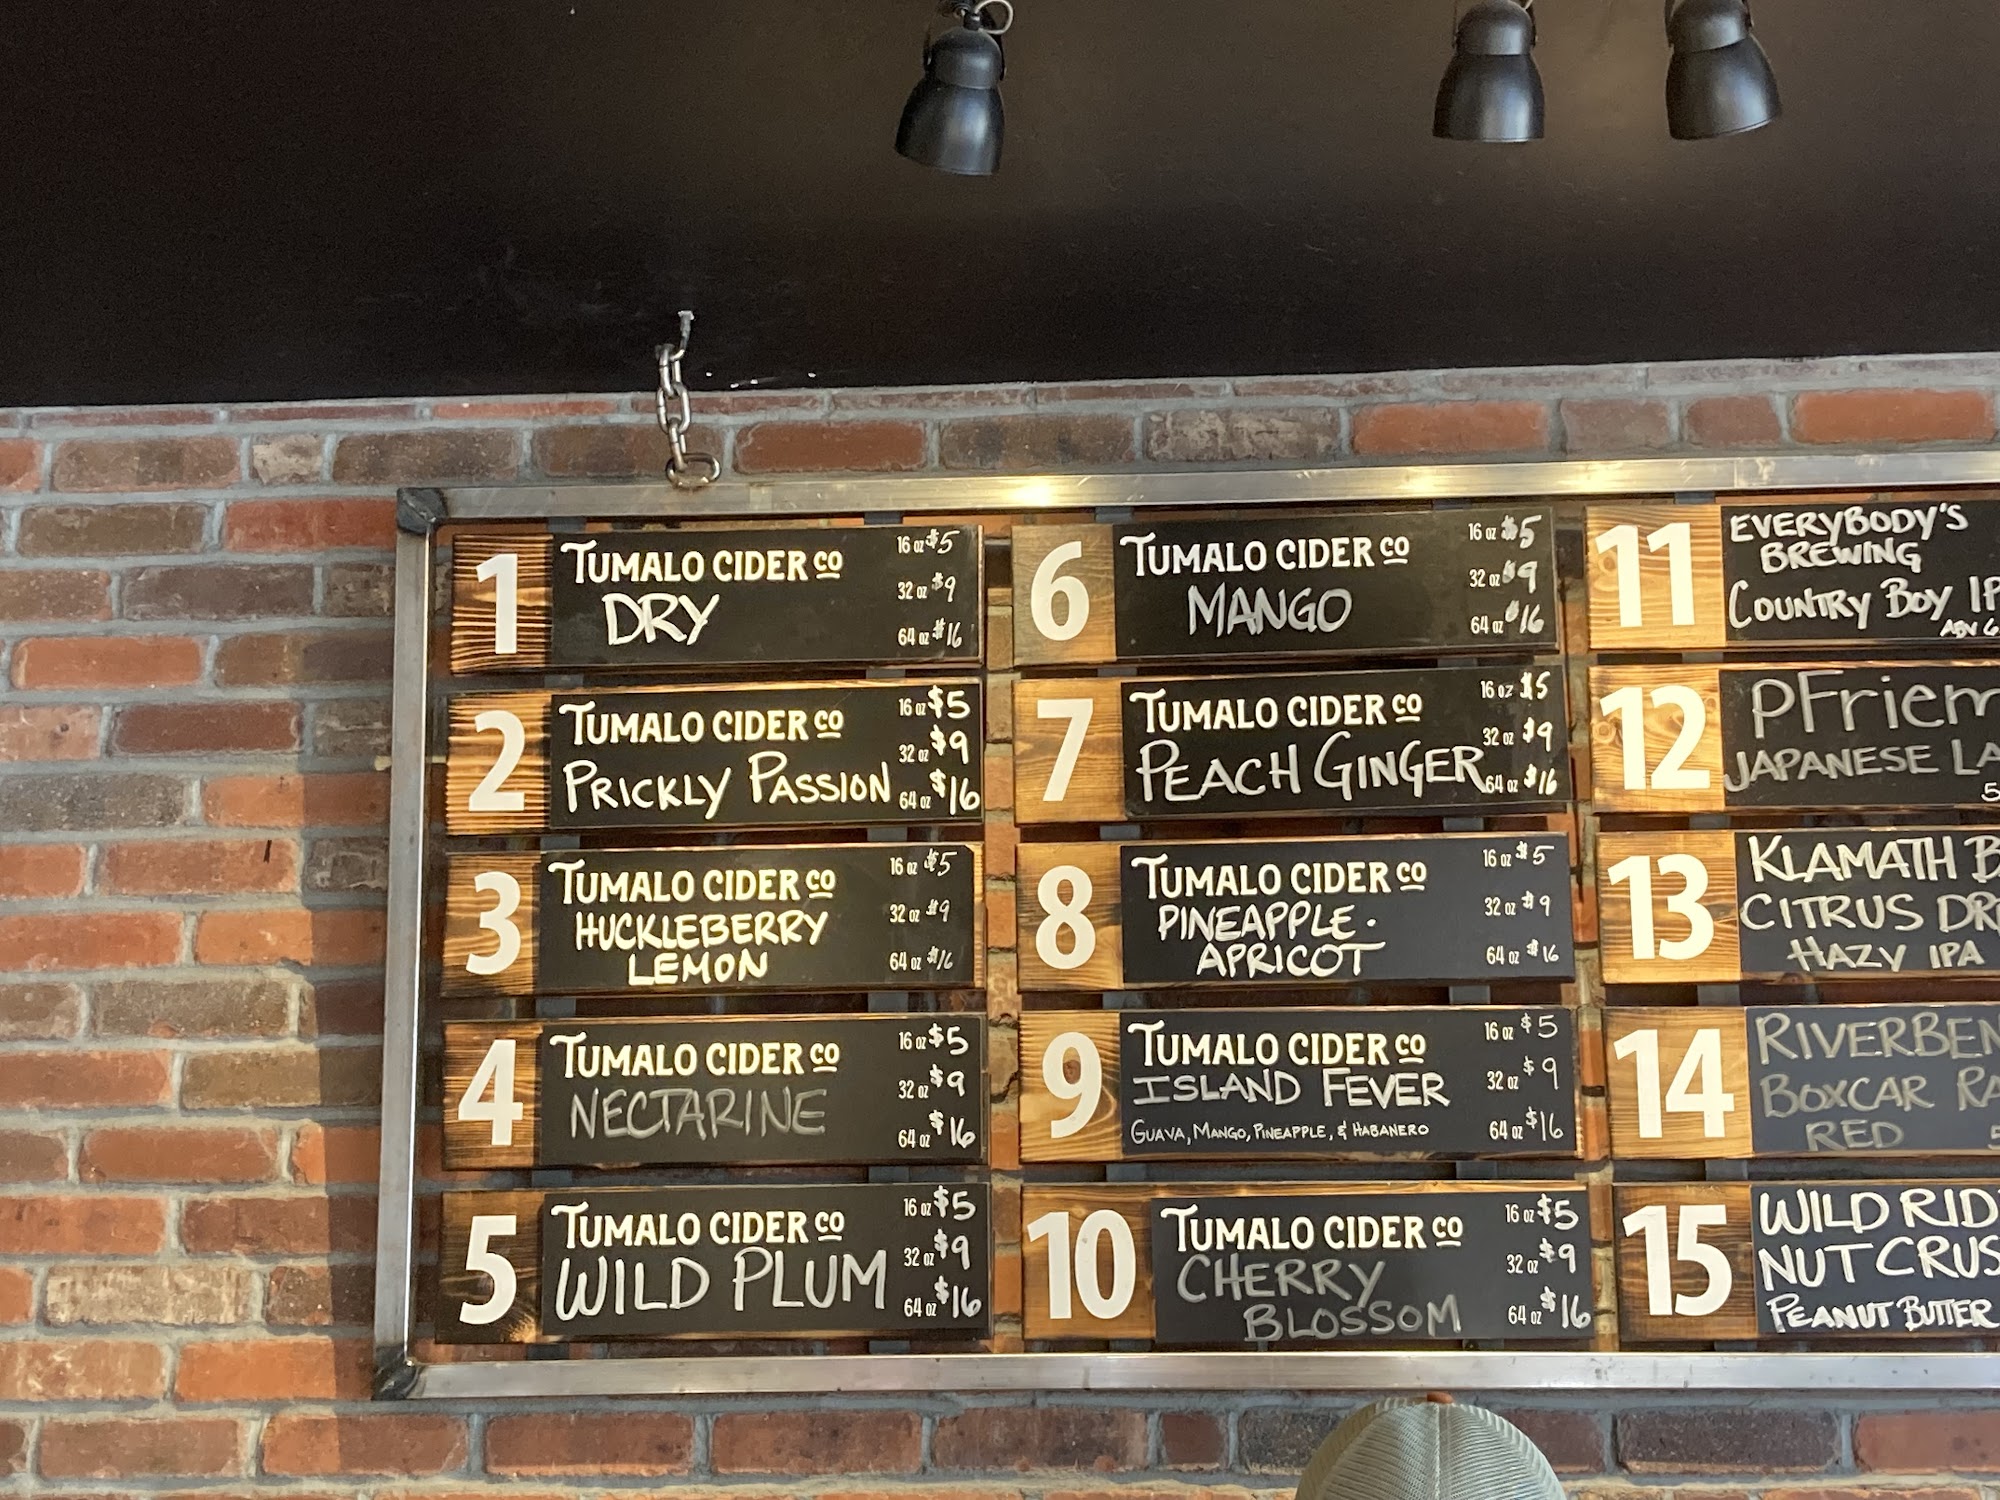 1
TUMALO CIDER CO
DRY
16 oz $5
32 oz $9
64 oz $16
2
TUMALO CIDER CO
PRICKLY PASSION
16 oz $5
32 oz $9
64 oz $16
3
TUMALO CIDER CO
HUCKLEBERRY
LEMON
16 oz $5
32 oz $9
64 oz $16
4
TUMALO CIDER CO
NECTARINE
16 oz $5
32 oz $9
64 oz $16
5
TUMALO CIDER CO
WILD PLUM
16 oz $5
32 oz $9
64 oz $16
6
TUMALO CIDER CO
MANGO
16 oz $5
32 oz $9
64 oz $16
7
TUMALO CIDER CO
PEACH GINGER
16 oz $5
32 oz $9
64 oz $16
8
TUMALO CIDER CO
PINEAPPLE.
APRICOT
16 oz $5
32 oz $9
64 oz $16
9
TUMALO CIDER CO
ISLAND FEVER
GUAVA, MANGO, PINEAPPLE, & HABANERO
16 oz $5
32 oz $9
64 oz $16
10
TUMALO CIDER CO
CHERRY
BLOSSOM
16 oz $5
32 oz $9
64 oz $16
11
EVERYBODY'S
BREWING
COUNTRY BOY IP
ABV 6
12
PFriem
JAPANESE LA
5
13
KLAMATH B
CITRUS DR
HAZY IPA
14
RIVERBEN
BOXCAR RA
RED
5
15
WILD RID
NUT CRUS
PEANUT BUTTER